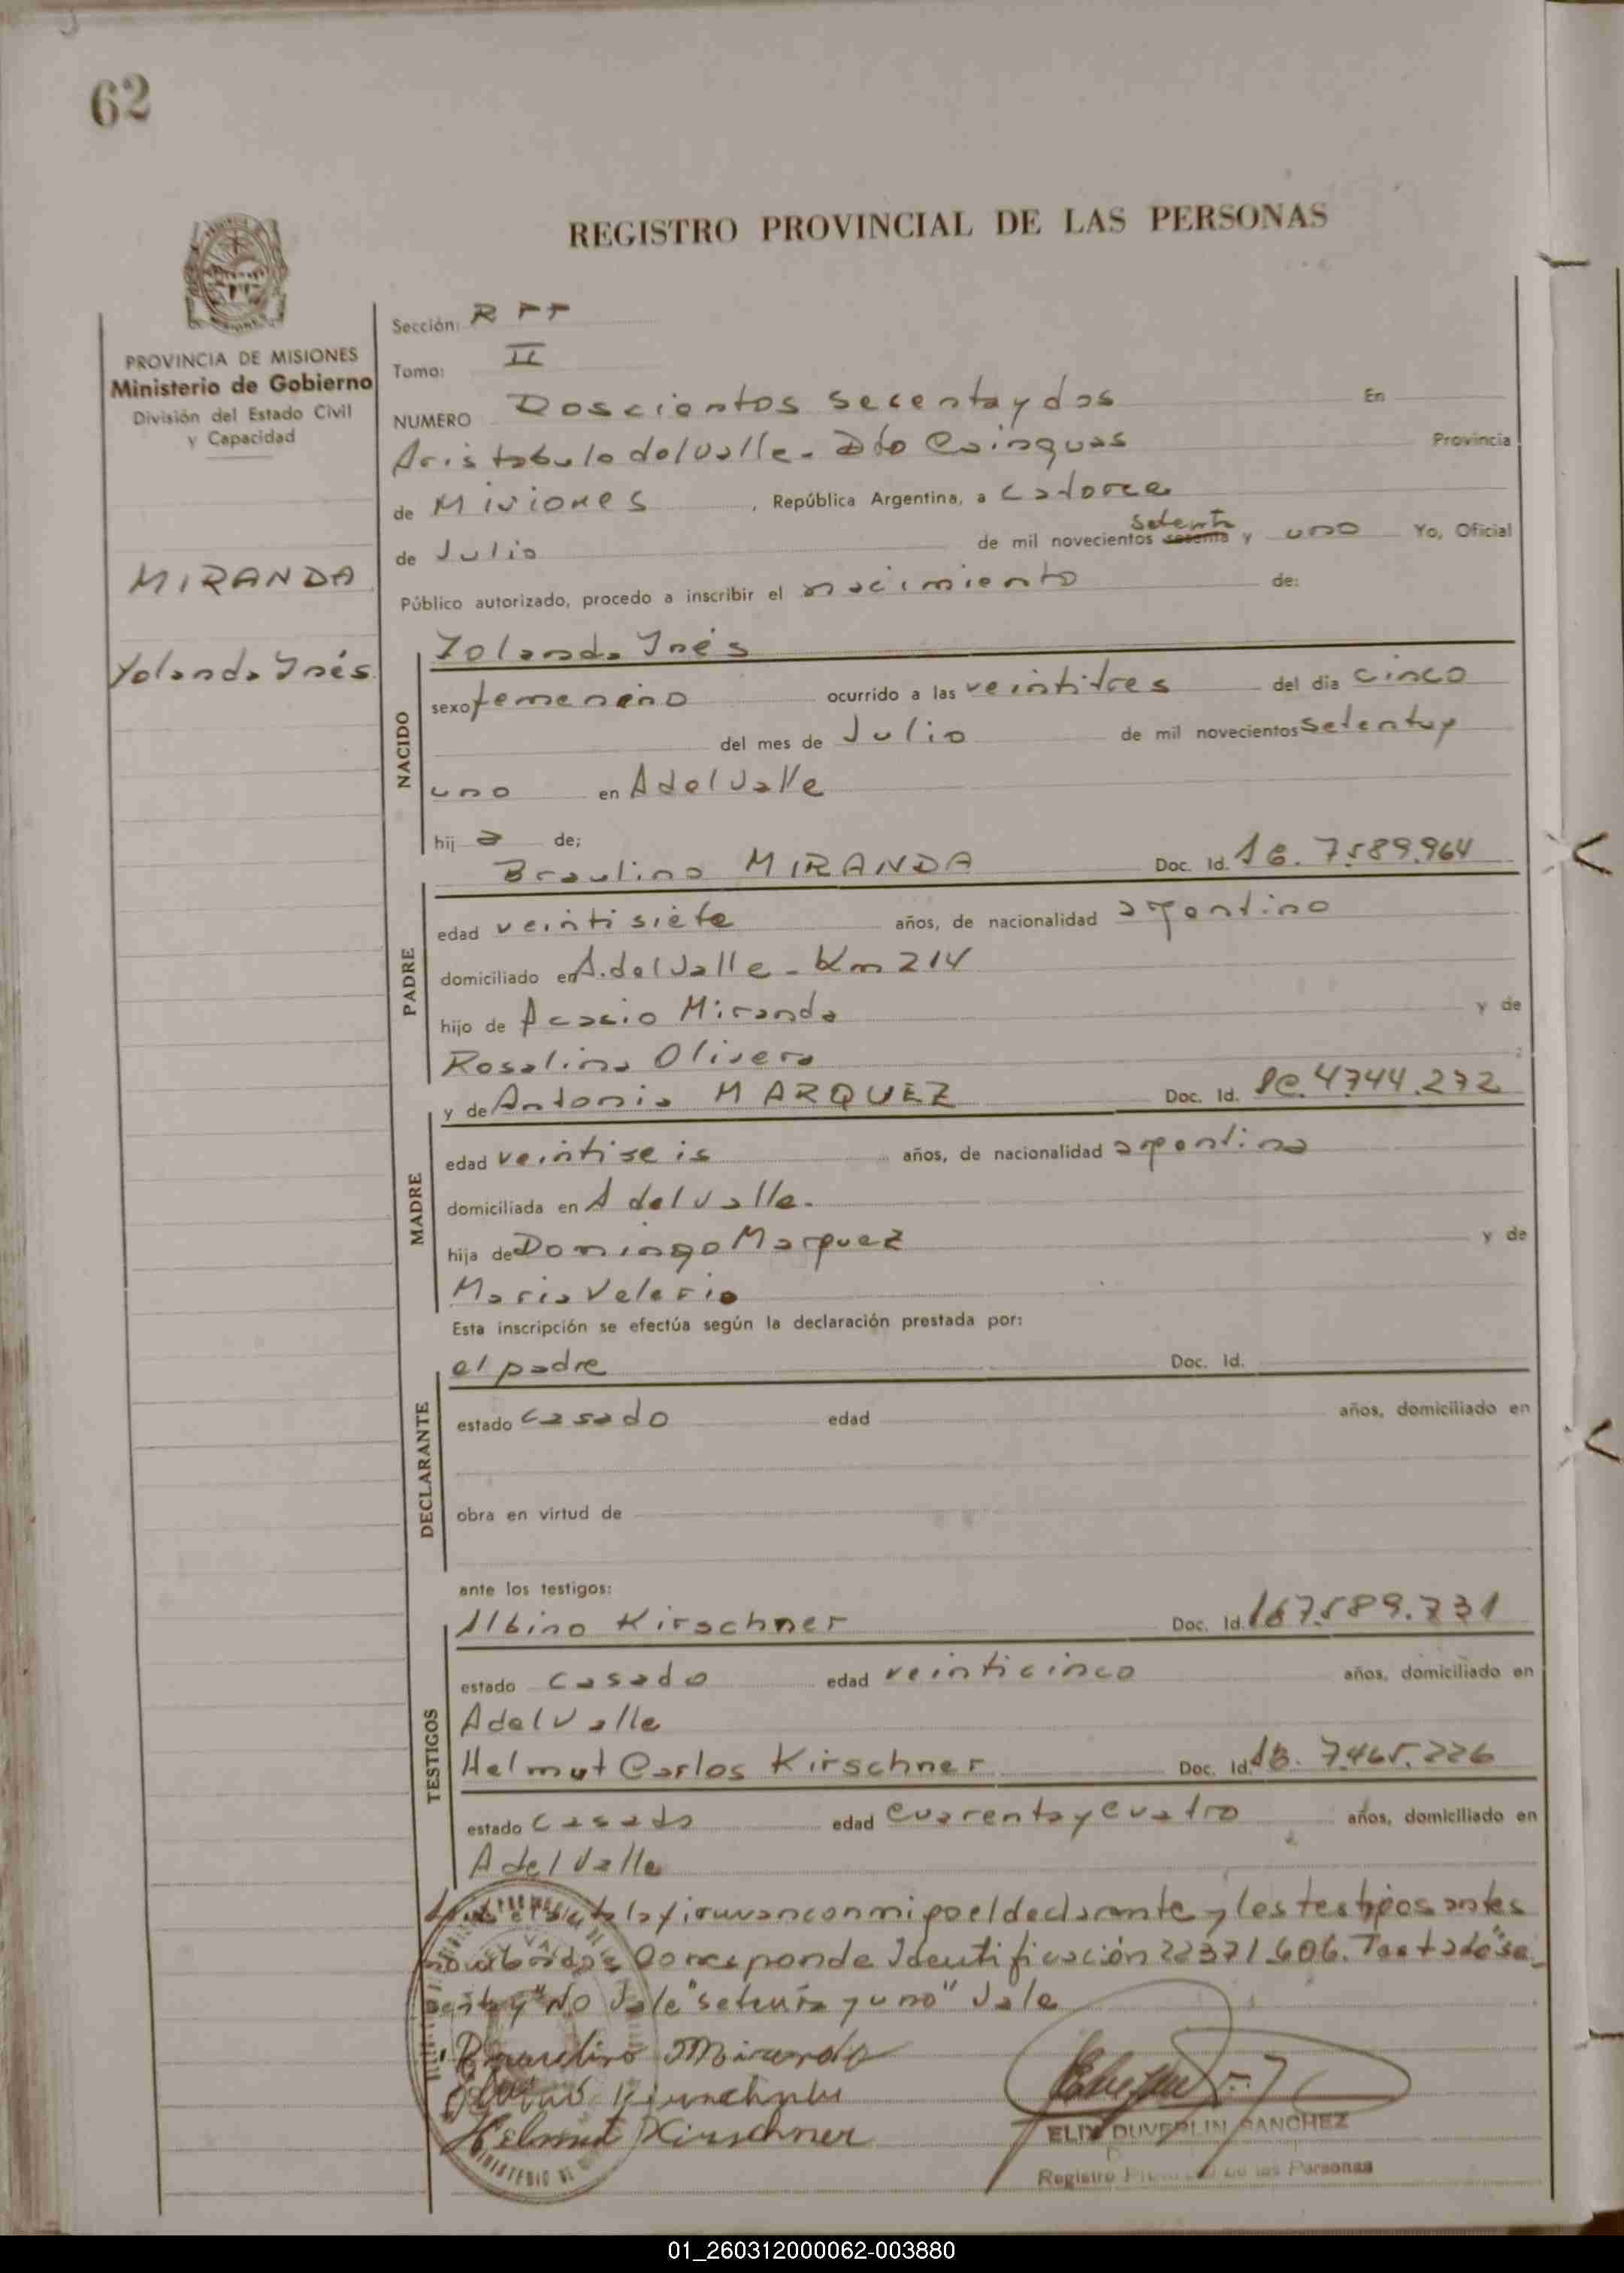 62
REGISTRO PROVINCIAL DE LAS PERSONAS
PROVINCIA DE MISIONES
Ministerio de Gobierno
División del Estado Civil
y Capacidad
MIRANDA
Yolanda Ynés
Sección:
Tomo: II
NUMERO Doscientos secenta y dos En
Aristobulo del Valle - Dto Cainguas Provincia
de Misiones, República Argentina, a catorce
setenta
de Julio de mil novecientos sesenta y uno Yo, Oficial
Público autorizado, procedo a inscribir el nacimiento de:
NACIDO
Yolanda Ynés
sexo femenino ocurrido a las veintitres del dia cinco
del mes de Julio de mil novecientos setenta y
uno en A del Valle
hij a de;
PADRE
Braulino MIRANDA Doc. Id. 7.589.964
edad veintisiete años, de nacionalidad argentino
domiciliado en A. del Valle - Km 214
hijo de Acacio Miranda y de
Rosalina Olivera
MADRE
y de Antonia MARQUEZ Doc. Id. 4.744.272
edad veintiseis años, de nacionalidad argentina
domiciliada en A del Valle.
hija de Domingo Marquez y de
Maria Velerio
Esta inscripción se efectúa según la declaración prestada por:
DECLARANTE
el padre Doc. Id.
estado casado edad años, domiciliado en
obra en virtud de
ante los testigos:
TESTIGOS
Albino Kirschner Doc. Id. 7.589.731
estado casado edad veinticinco años, domiciliado en
A del Valle
Helmut Carlos Kirschner Doc. Id. 7.465.226
estado casado edad cuarenta y cuatro años, domiciliado en
A del Valle
la firman conmigo el declarante y los testigos antes
nombrados Corresponde Identificación 22371.606. Testado "se
senta y" No Vale "setenta y uno" Vale
Braulino Miranda
Helmut Kirschner
ELIX DUVERLIN SANCHEZ
Registro Provincial de las Personas
01_260312000062-003880